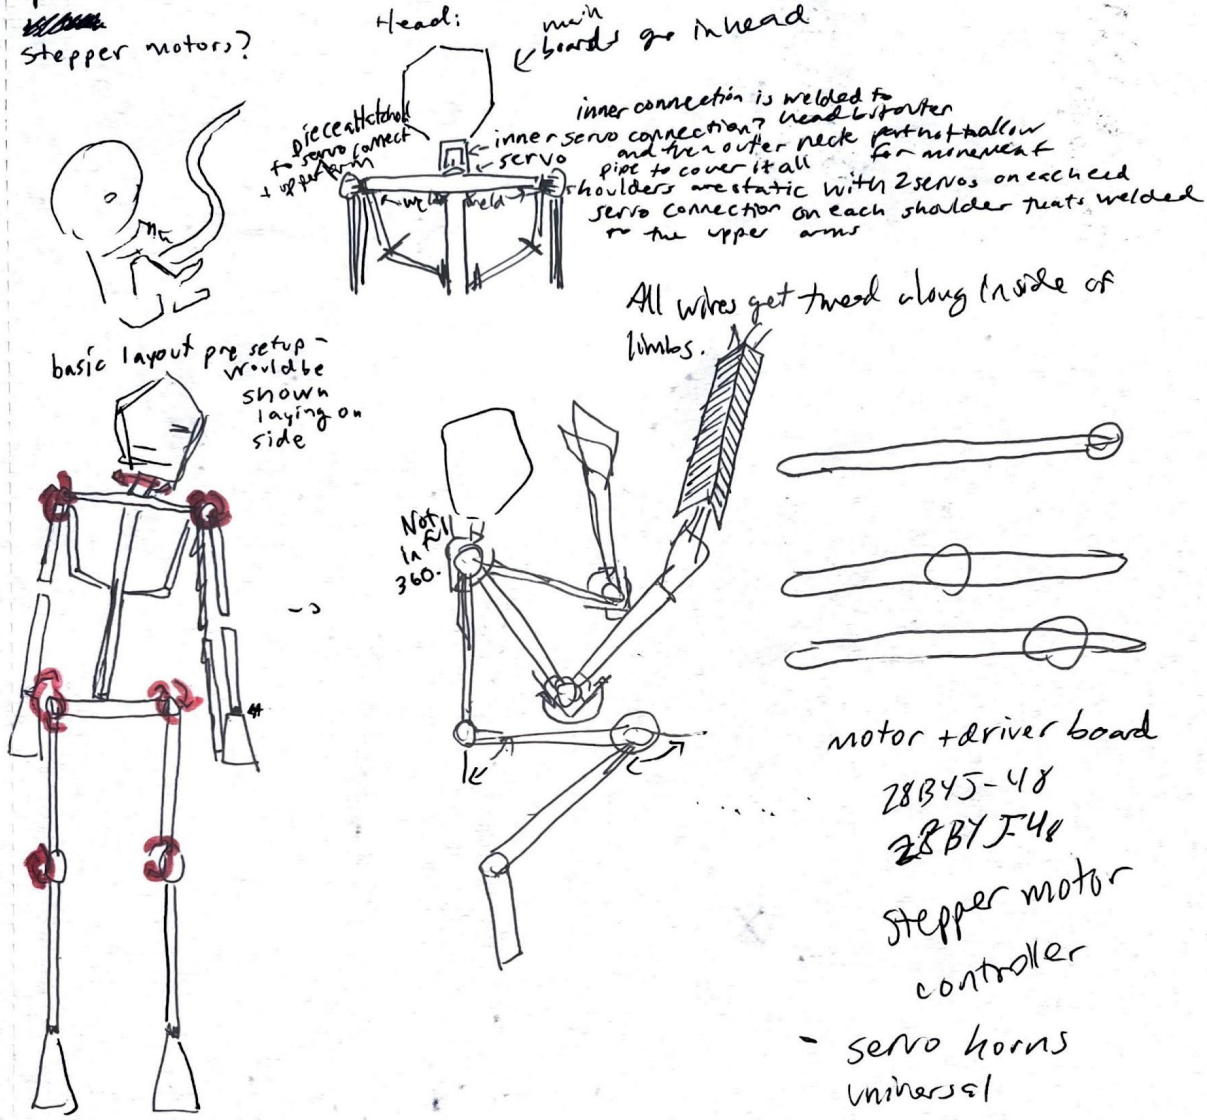 stepper motors?
Head:
main
boards go in head
piece attached
to servo connect
+ upper arm
inner connection is welded to
inner servo connection? head but outer
servo and then outer neck part not hallow
pipe to cover it all for movement
shoulders are static with 2 servos on each end
servo connection on each shoulder thats welded
to the upper arms
weld weld
All wires get along inside of
limbs.
basic layout pre setup -
would be
shown
laying on
side
Not
in full
360.
motor + driver board
28BYJ-48
28BYJ-48
stepper motor
controller
- servo horns
universal